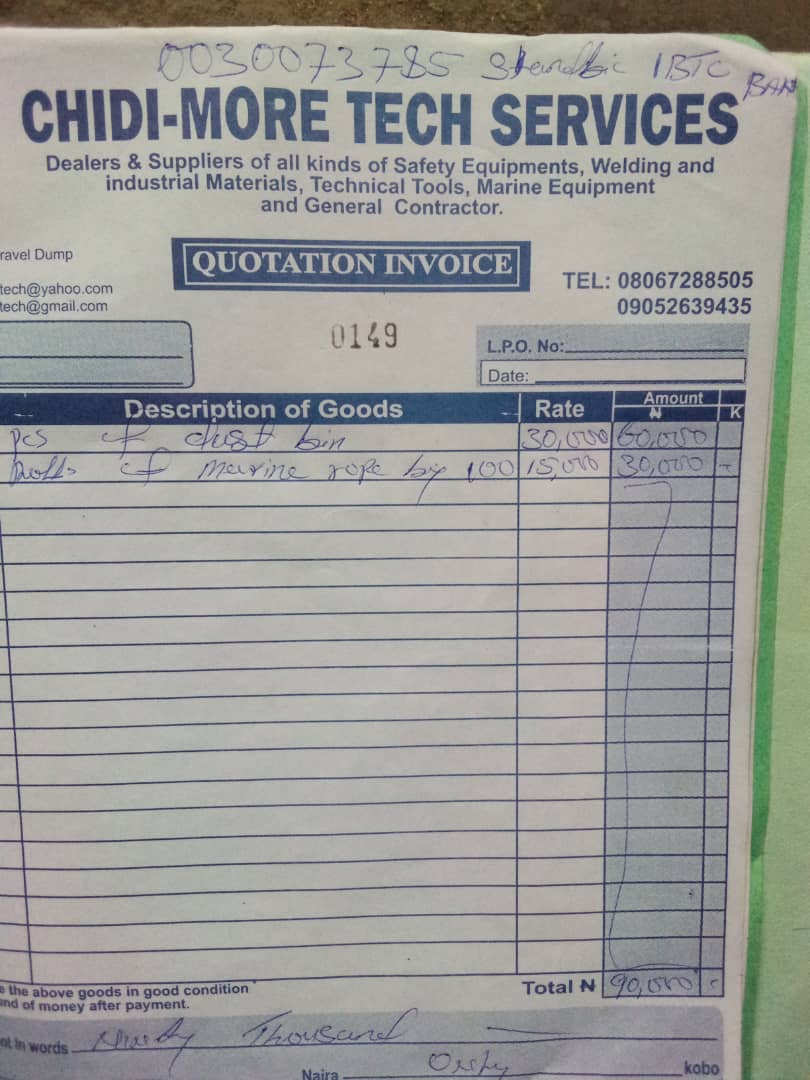 0030073785 Stanbic IBTC BANK
CHIDI-MORE TECH SERVICES
Dealers & Suppliers of all kinds of Safety Equipments, Welding and
industrial Materials, Technical Tools, Marine Equipment
and General Contractor.
ravel Dump
QUOTATION INVOICE
TEL: 08067288505
tech@yahoo.com
tech@gmail.com
09052639435
0149
L.P.O. No:
Date:
Description of Goods Rate Amount
₦ K
Pcs of dust bin 30,000 60,000
Rolls of marine rope by 100 15,000 30,000 -
e the above goods in good condition
and of money after payment.
Total ₦ 90,000 -
nt in words Ninety Thousand
Naira Only kobo